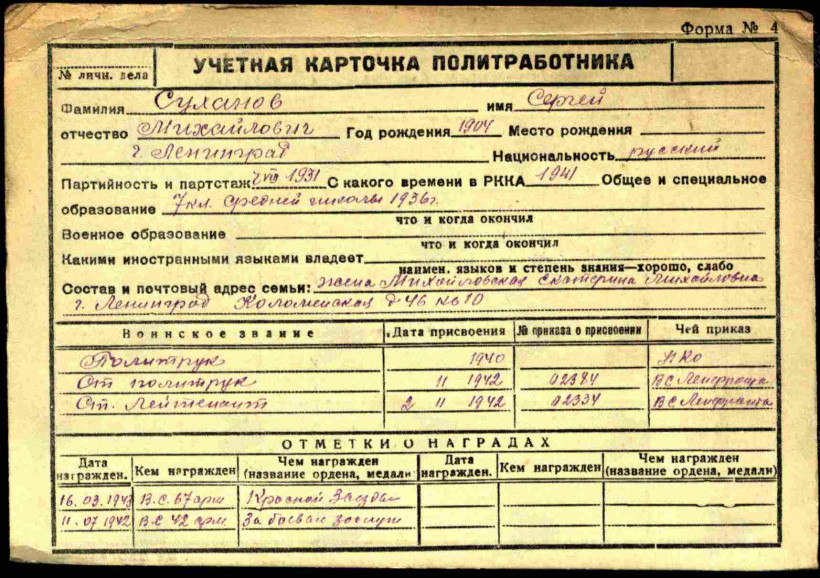 Форма № 4
№ личн. дела
УЧЕТНАЯ КАРТОЧКА ПОЛИТРАБОТНИКА
Фамилия Суханов имя Сергей
отчество Михайлович Год рождения 1904 Место рождения
г. Ленинград Национальность русский
Партийность и партстаж VIII 1931 С какого времени в РККА 1941 Общее и специальное
образование 7 кл. средней школы 1936 г.
что и когда окончил
Военное образование
что и когда окончил
Какими иностранными языками владеет
наимен. языков и степень знания—хорошо, слабо
Состав и почтовый адрес семьи: жена Михайловская Екатерина Михайловна
г. Ленинград Коломенская д 46 кв 10
Воинское звание Дата присвоения № приказа о присвоении Чей приказ
Политрук 1940 НКО
Ст политрук 11 1942 02384 ВС Ленфронта
Ст. Лейтенант 2 11 1942 02334 ВС Ленфронта
ОТМЕТКИ О НАГРАДАХ
Дата награжден. Кем награжден Чем награжден (название ордена, медали) Дата награжден. Кем награжден Чем награжден (название ордена, медали)
16.03.1943 В.С. 67 арм Красной Звезды
11.07 1942 В.С 42 арм За боевые заслуги